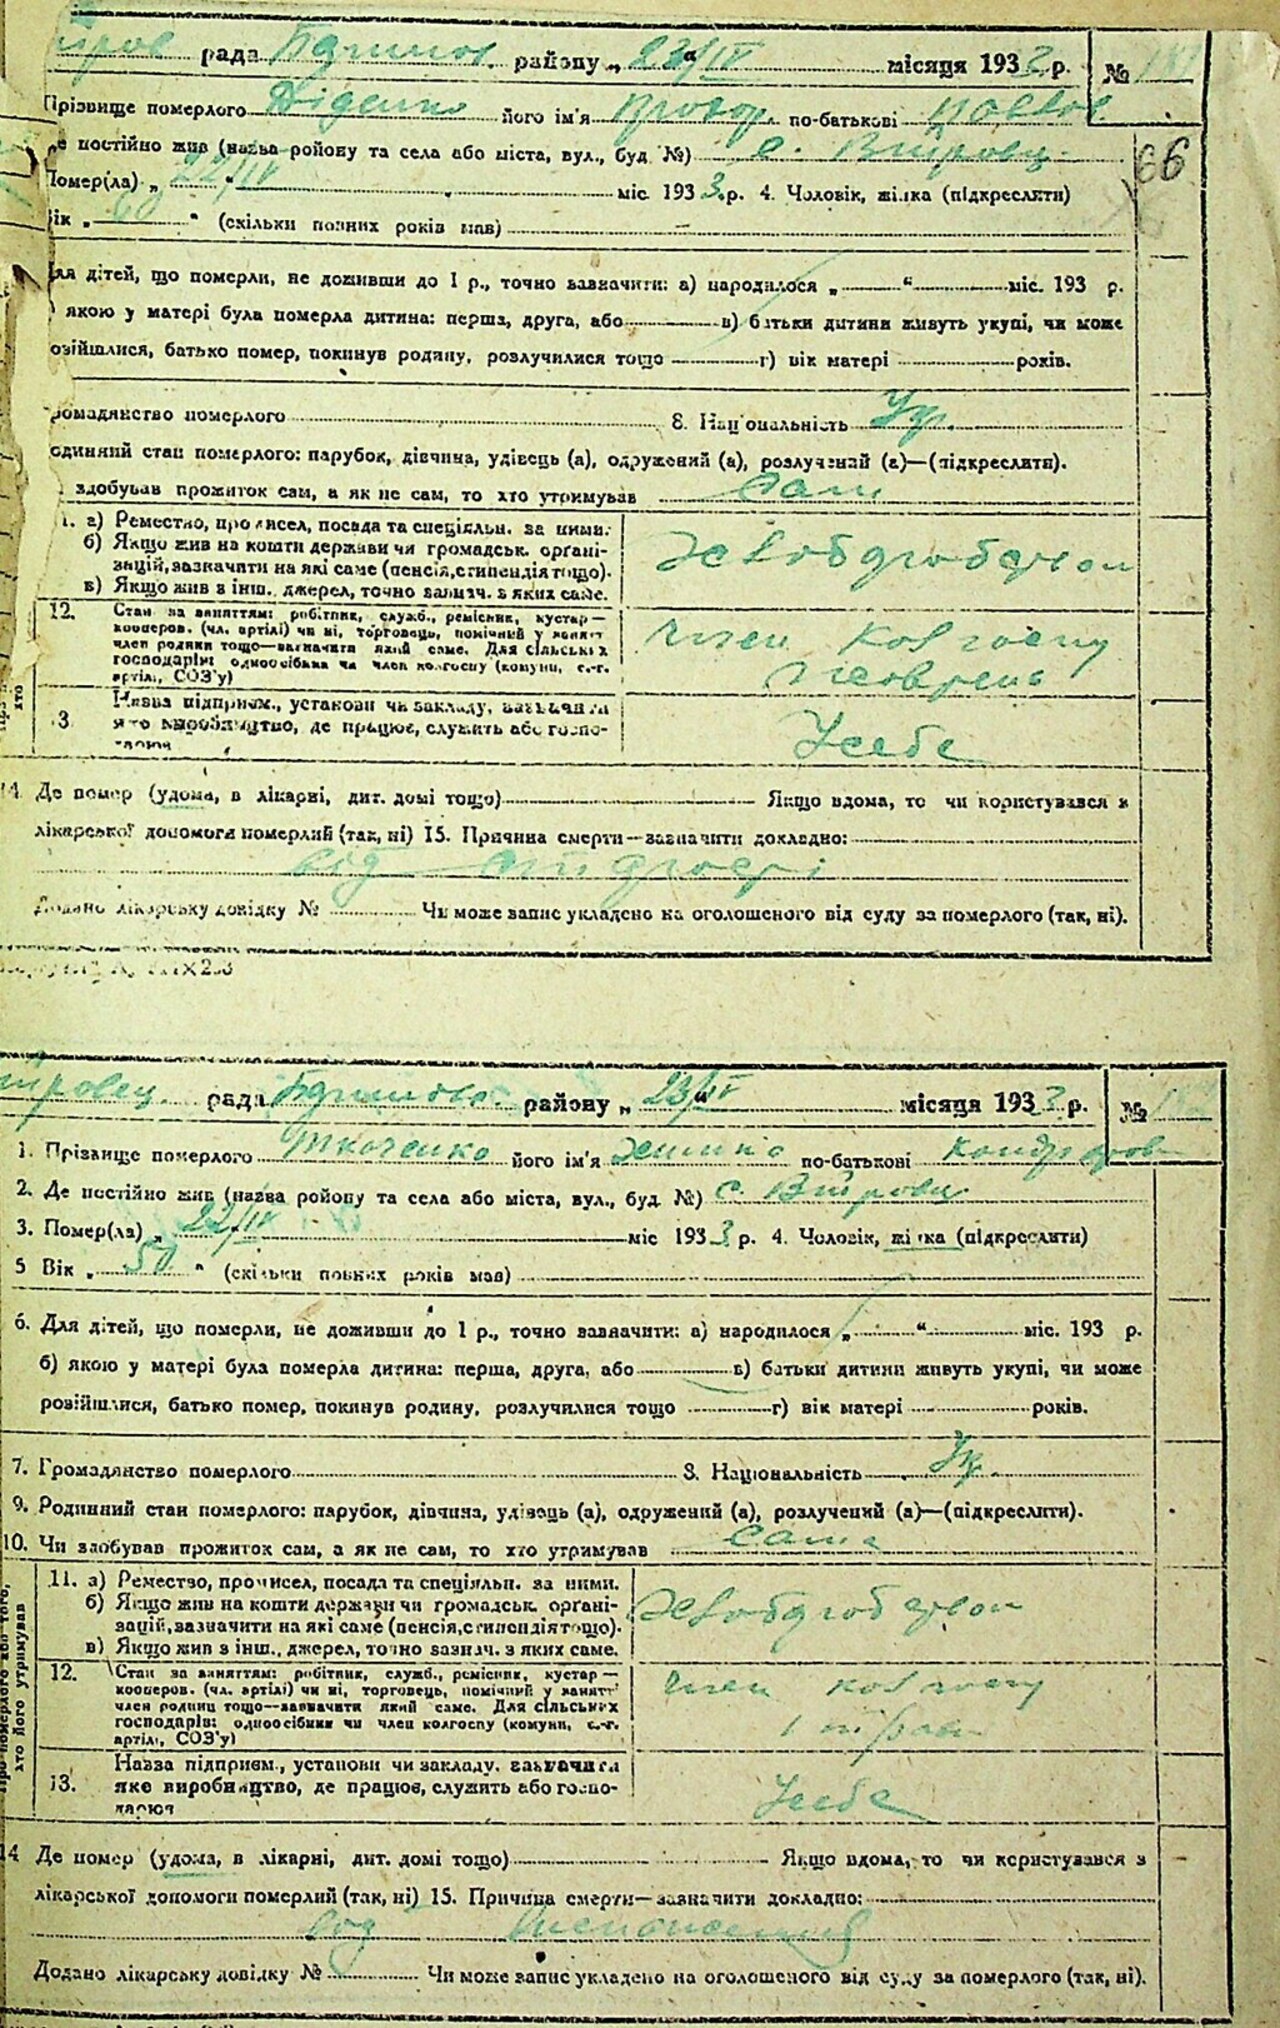 рада району „ 23/IV місяця 1933 р. №
Прізвище померлого Діденко його ім'я Прохор по-батькові Павлов.
постійно жив (назва району та села або міста, вул., буд №) с. Вітровц.
Помер(ла) „ 22/IV міс. 1933 р. 4. Чоловік, жінка (підкреслити)
66
Вік „ 60 “ (скільки повних років мав)
Для дітей, що померли, не доживши до 1 р., точно вазначити: а) народилося „ “ міс. 193 р.
якою у матері була померла дитина: перша, друга, або в) батьки дитини живуть укупі, чи може
розійшлися, батько помер, покинув родину, розлучилися тощо г) вік матері років.
Громадянство померлого 8. Національність Укр.
Родинний стан померлого: парубок, дівчина, удівець (а), одружений (а), розлучений (а)—(підкреслити).
здобував прожиток сам, а як не сам, то хто утримував сам
11. а) Ремество, промисел, посада та спеціяльн. за ними.
б) Якщо жив на кошти держави чи громадськ. органі-
зацій, зазначити на які саме (пенсія, стипендія тощо). Хлібороб
в) Якщо жив з інш. джерел, точно зазнач. з яких саме.
12. Стан за заняттям: робітник, служб., ремісник, кустар—
кооперов. (чл. артілі) чи ні, торговець, помічний у занятт член колгоспу
член родини тощо—зазначити який саме. Для сільських
господарів: одноосібник чи член колгоспу (комуни, с.-г.
артілі, СОЗ'у)
13. Назва підприєм., установи чи закладу, зазначити
яке виробництво, де працює, служить або госпо- У себе
дарює
14. Де помер (удома, в лікарні, дит. домі тощо) Якщо вдома, то чи користувався з
лікарської допомоги померлий (так, ні) 15. Причина смерти—зазначити докладно:
від
Додано лікарську довідку № Чи може запис укладено на оголошеного від суду за померлого (так, ні).
рада району „ 23/IV місяця 1933 р. №
1. Прізвище померлого Ткаченко його ім'я по-батькові
2. Де постійно жив (назва району та села або міста, вул., буд №) с. Вітровц.
3. Помер(ла) „ 22/IV міс 1933 р. 4. Чоловік, жінка (підкреслити)
5 Вік „ 50 “ (скільки повних років мав)
6. Для дітей, що померли, не доживши до 1 р., точно вазначити: а) народилося „ “ міс. 193 р.
б) якою у матері була померла дитина: перша, друга, або в) батьки дитини живуть укупі, чи може
розійшлися, батько помер, покинув родину, розлучилися тощо г) вік матері років.
7. Громадянство померлого 8. Національність Ук.
9. Родинний стан померлого: парубок, дівчина, удівець (а), одружений (а), розлучений (а)—(підкреслити).
10. Чи здобував прожиток сам, а як не сам, то хто утримував сама
11. а) Ремество, промисел, посада та спеціяльн. за ними.
б) Якщо жив на кошти держави чи громадськ. органі-
зацій, зазначити на які саме (пенсія, стипендія тощо). Хлібороб
в) Якщо жив з інш. джерел, точно зазнач. з яких саме.
12. Стан за заняттям: робітник, служб., ремісник, кустар—
кооперов. (чл. артілі) чи ні, торговець, помічний у занятт член колгоспу
член родини тощо—зазначити який саме. Для сільських
господарів: одноосібник чи член колгоспу (комуни, с.-г.
артілі, СОЗ'у)
13. Назва підприєм., установи чи закладу, зазначити
яке виробництво, де працює, служить або госпо- У себе
дарює
14 Де помер (удома, в лікарні, дит. домі тощо) Якщо вдома, то чи користувався з
лікарської допомоги померлий (так, ні) 15. Причина смерти—зазначити докладно:
від
Додано лікарську довідку № Чи може запис укладено на оголошеного від суду за померлого (так, ні).